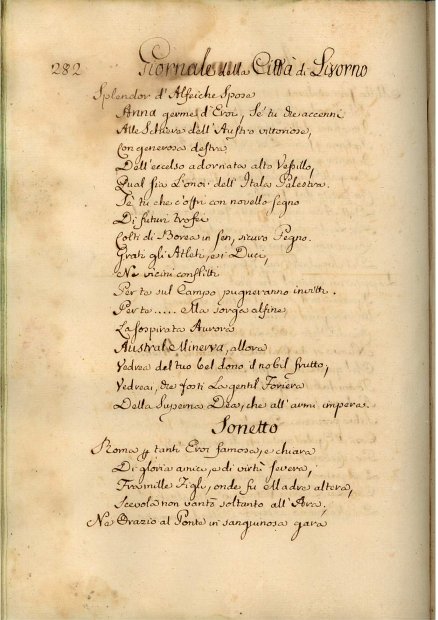 282 Giornale della Città di Livorno
Splendor d'Alfee che Spose
Anna germe d'Eroi, Se' tu che accenni
Alle Schiere dell'Austro vittoriose,
Con generosa destra
Dell'eccelso adornata alto Vessillo,
Qual sia l'onor dell'Itala Palestra.
Se' tu che c'offri con novello segno
Di futuri trofei
Colti di Borea in sen, sicuro Pegno.
Grati gli Atleti, e i Duci,
Ne vicini conflitti
Per te sul Campo pugneranno invitti.
Per te..... Ma sorga alfine
La sospirata Aurora
Austral Minerva, allora
Vedrea del tuo bel dono il nobil frutto,
Vedreai, che fosti La gentil Foriera
Della Superna Dea, che all'armi impera.
Sonetto
Roma p tanti Eroi famosa, e chiara
Di gloria amica, e di virtù severa,
Fra mille Figli, onde fu Madre altera,
Scevola non vantò soltanto all'Ara,
Ne Orazio al Ponte in sanguinosa gara